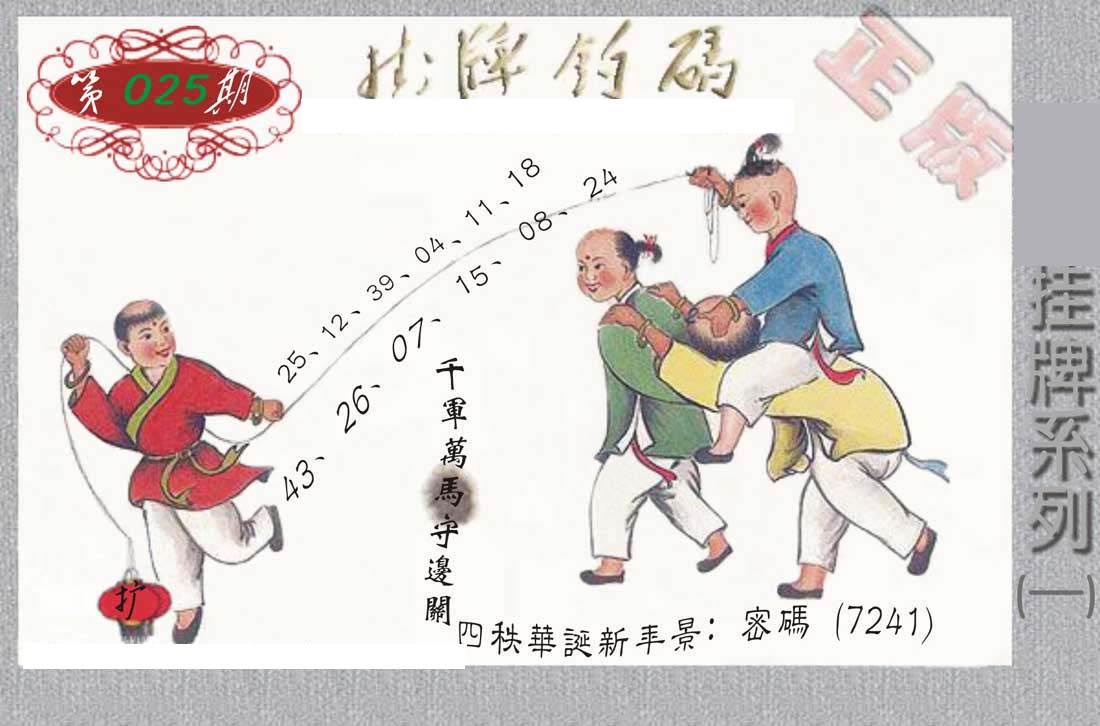 第025期
掛牌釣碼
正版
25、12、39、04、11、18
43、26、07、15、08、24
千軍萬馬守邊關
扩
四秩華誕新年景：密碼（7241）
挂牌系列(一)